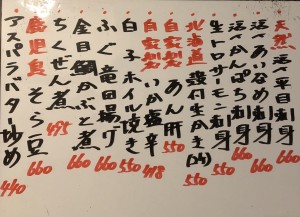 天然 活〆平目刺身
活〆あいなめ刺身
活〆かんぱち刺身 660
生トロサーモン刺身 550
北海道 殻付生かき(2ケ) 550
自家製 あん肝 550
自家製 いか塩辛 418
白子ホイル焼き 550
ふぐ竜田揚げ 660
金目鯛かぶと煮 660
ちくぜん煮 495
鹿児島 そら豆 660
アスパラバター炒め 440